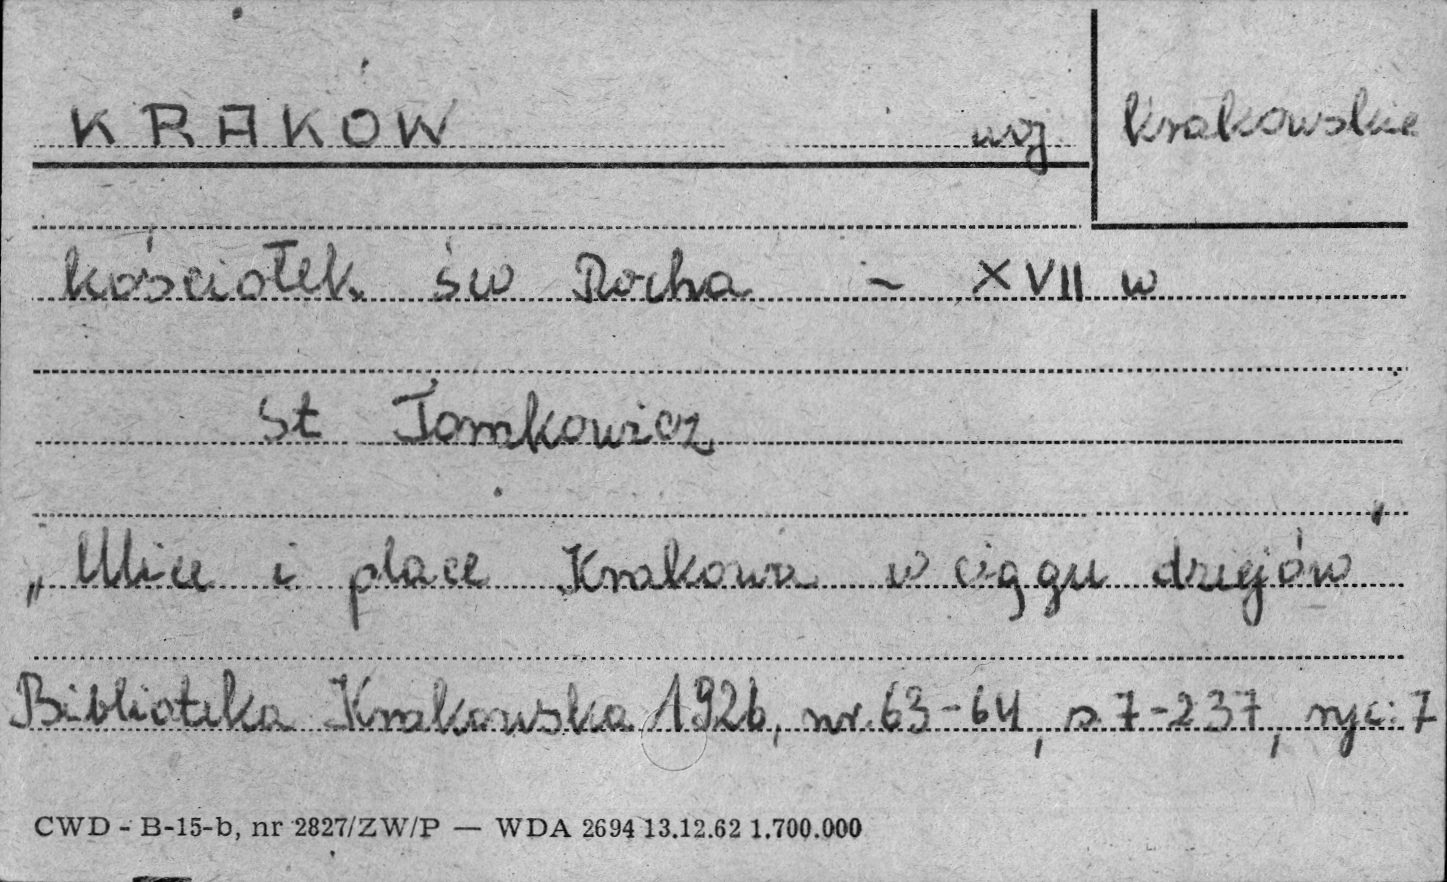 KRAKÓW woj. krakowskie
kościołek św Rocha - XVII w
St Tomkowicz
„Ulice i place Krakowa w ciągu dziejów"
Biblioteka Krakowska 1926, nr. 63-64, s. 7-237, ryc: 7
CWD - B-15-b, nr 2827/ZW/P — WDA 2694 13.12.62 1.700.000